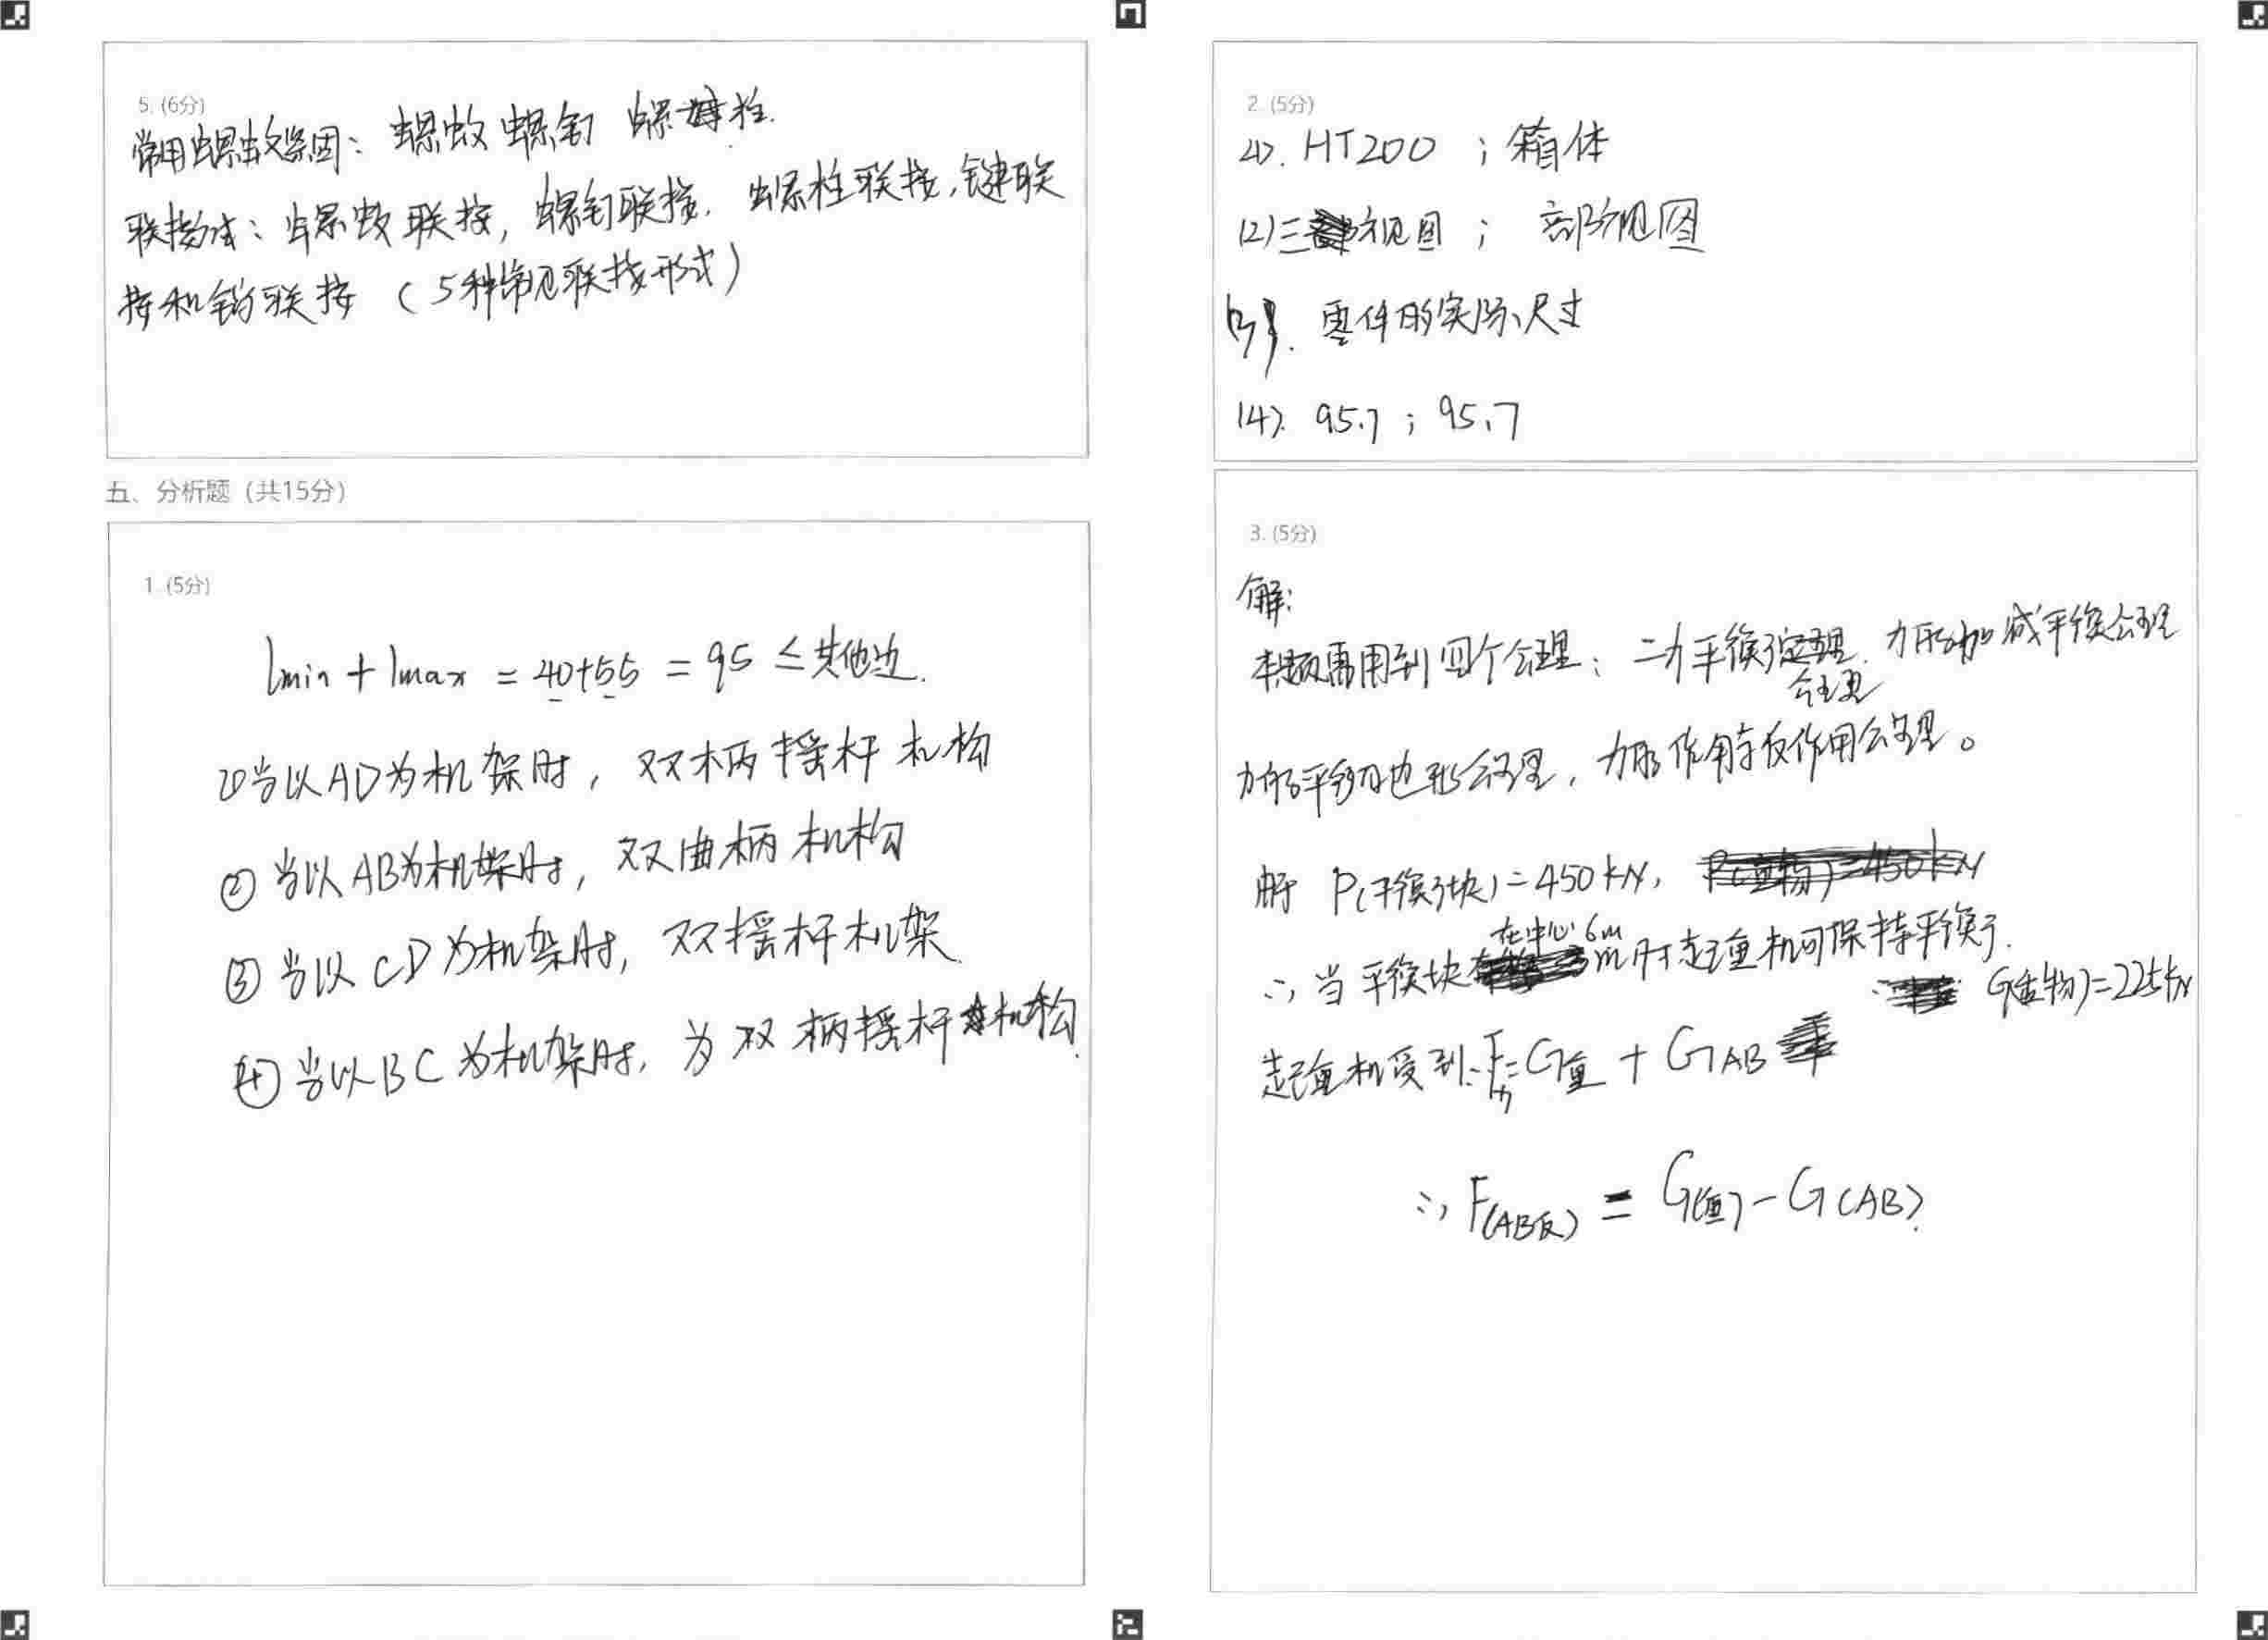 5. (6分)
常用螺蚊紧固：螺蚊 螺钉 螺栓.
联接方法：螺蚊联接，螺钉联接．螺栓联接，键联
接和销联接（5种常见联接形式）
五、分析题（共15分）
1. (5分)
lmin + lmax = 40+55 = 95 ≤ 其他边.
①当以AD为机架时，双柄摇杆机构
② 当以AB为机架时，双曲柄机构
③ 当以CD为机架时，双摇杆机架.
④ 当以BC为机架时，为双柄摇杆机构.
2. (5分)
(1). HT200 ；箱体
(2)三视图 ； 部视图
(3). 零件的实际尺寸
(4). 95.7 ; 95.7
3. (5分)
解:
本题需用到四个公理：二力平衡公理．力的加减平衡公理
力的平行四边形公理，力的作用与反作用公理。
由于 P(平衡块)=450kN,
∴当平衡块在中心6m时起重机可保持平衡.
G(重物)=225kN
起重机受到∴F=G重 + GAB
∴ F(AB反) = G(重) - G(AB).